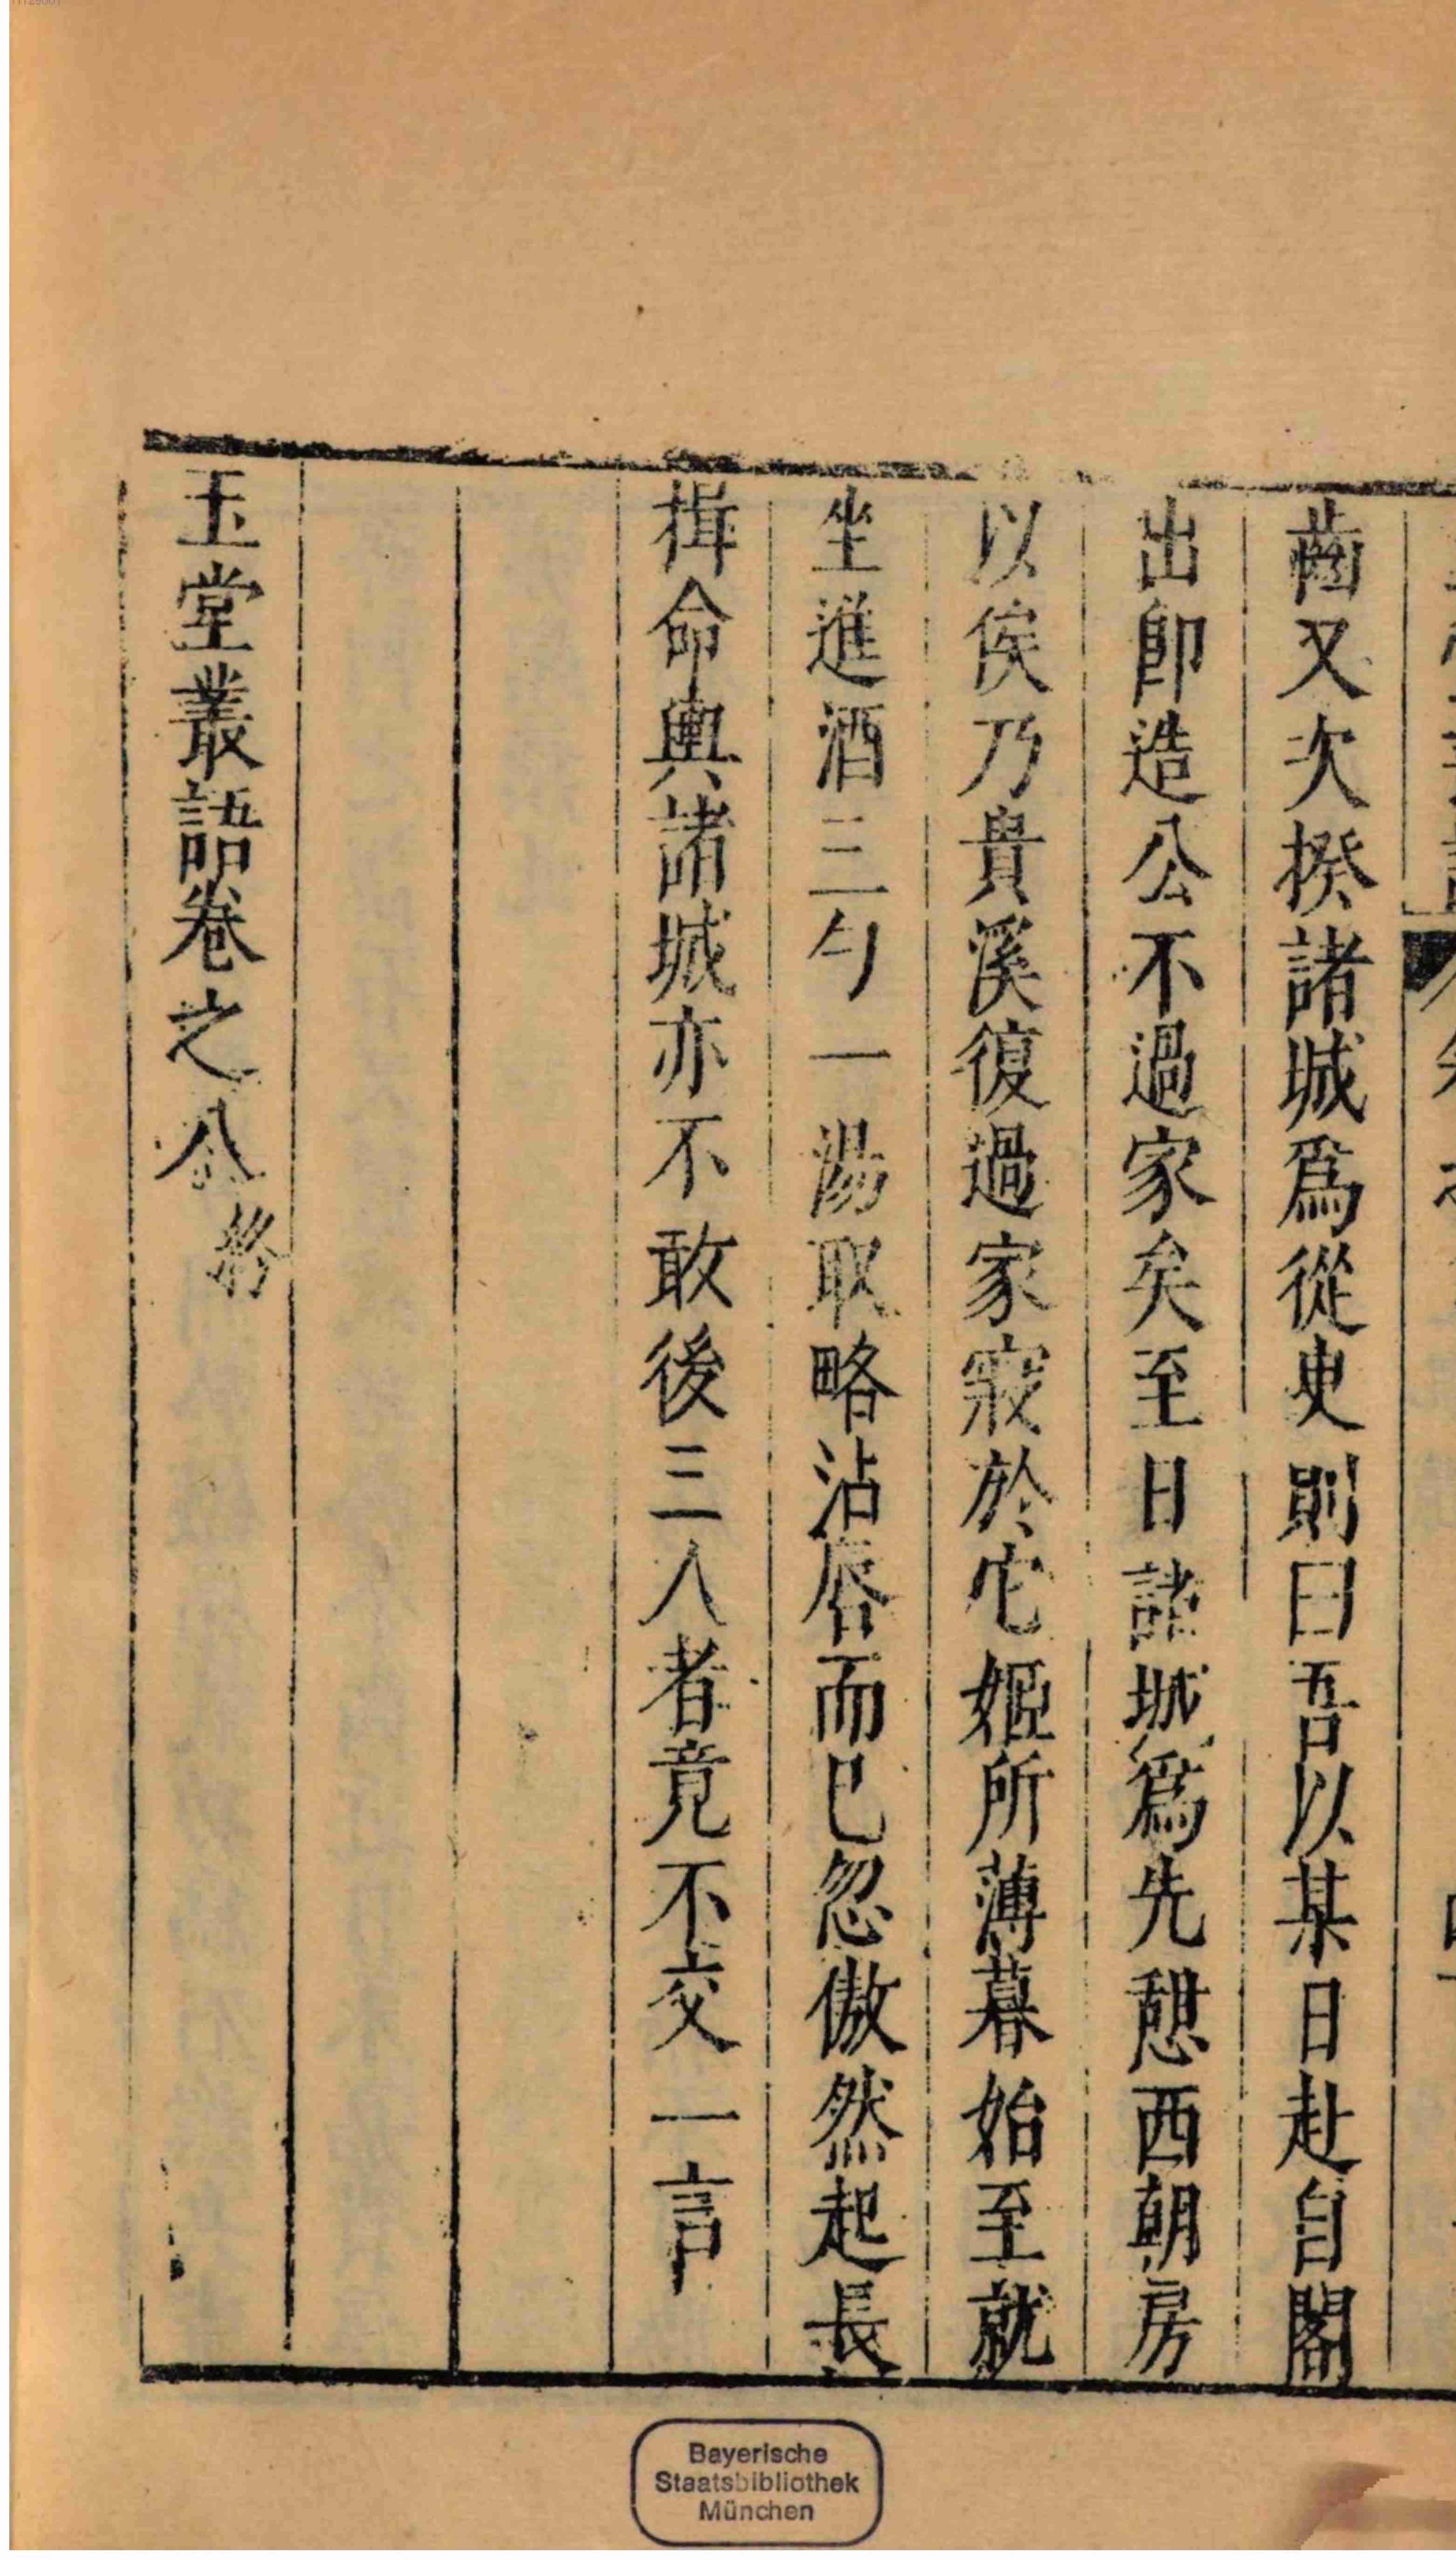 齒又次揆諸城爲從史則曰吾以某日赴自閣
出卽造公不過家矣至日諸城爲先憇西朝房
以俟乃貴溪復過家寢於它姬所薄暮始至就
坐進酒三勺一湯取略沾唇而已忽傲然起長
揖命輿諸城亦不敢後三人者竟不交一言
玉堂叢語卷之八終
Bayerische
Staatsbibliothek
München